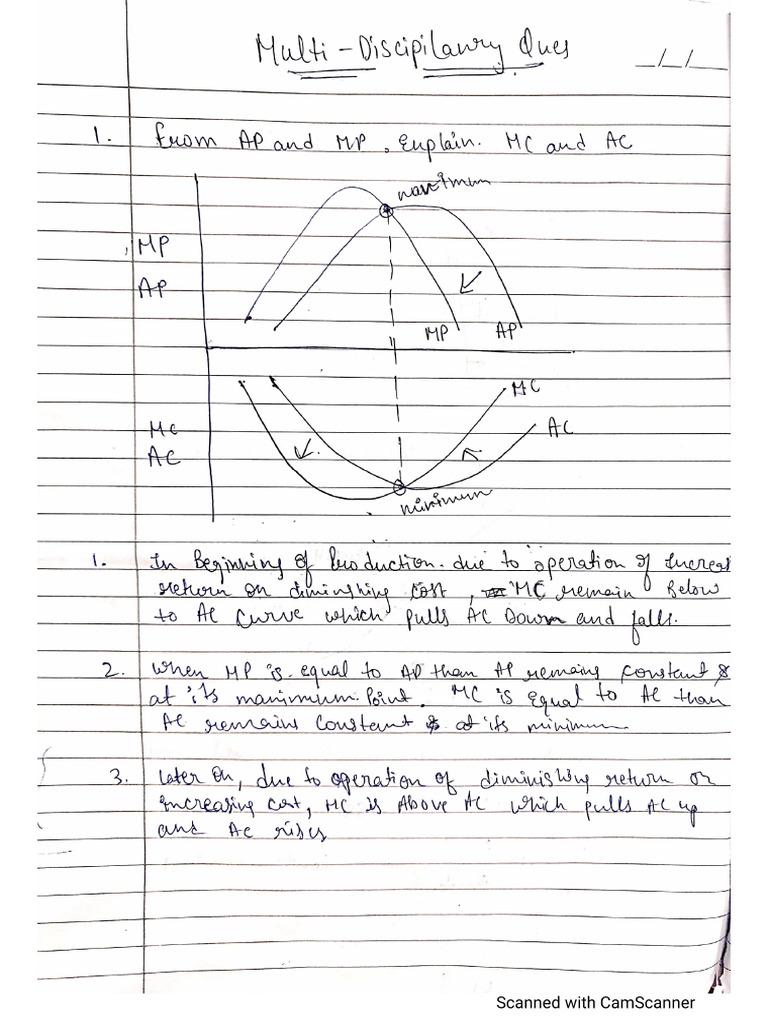 Multi-Discipilanry Ques
_/_/__
1. From AP and MP, Explain. MC and AC
maximum
MP
AP
MP AP
MC
AC
MC
AC
minimum
1. In Beginning of Production. due to operation of Increas
return or diminshing cost, MC remain Below
to AC curve which pulls AC Down and falls.
2. When MP is equal to AP than AP remains constant &
at its maximum Point. MC is equal to AC than
AC remains constant & at its minimum
3. Later on, due to operation of diminishing return or
increasing cost, MC is Above AC which pulls AC up
and AC rises
Scanned with CamScanner